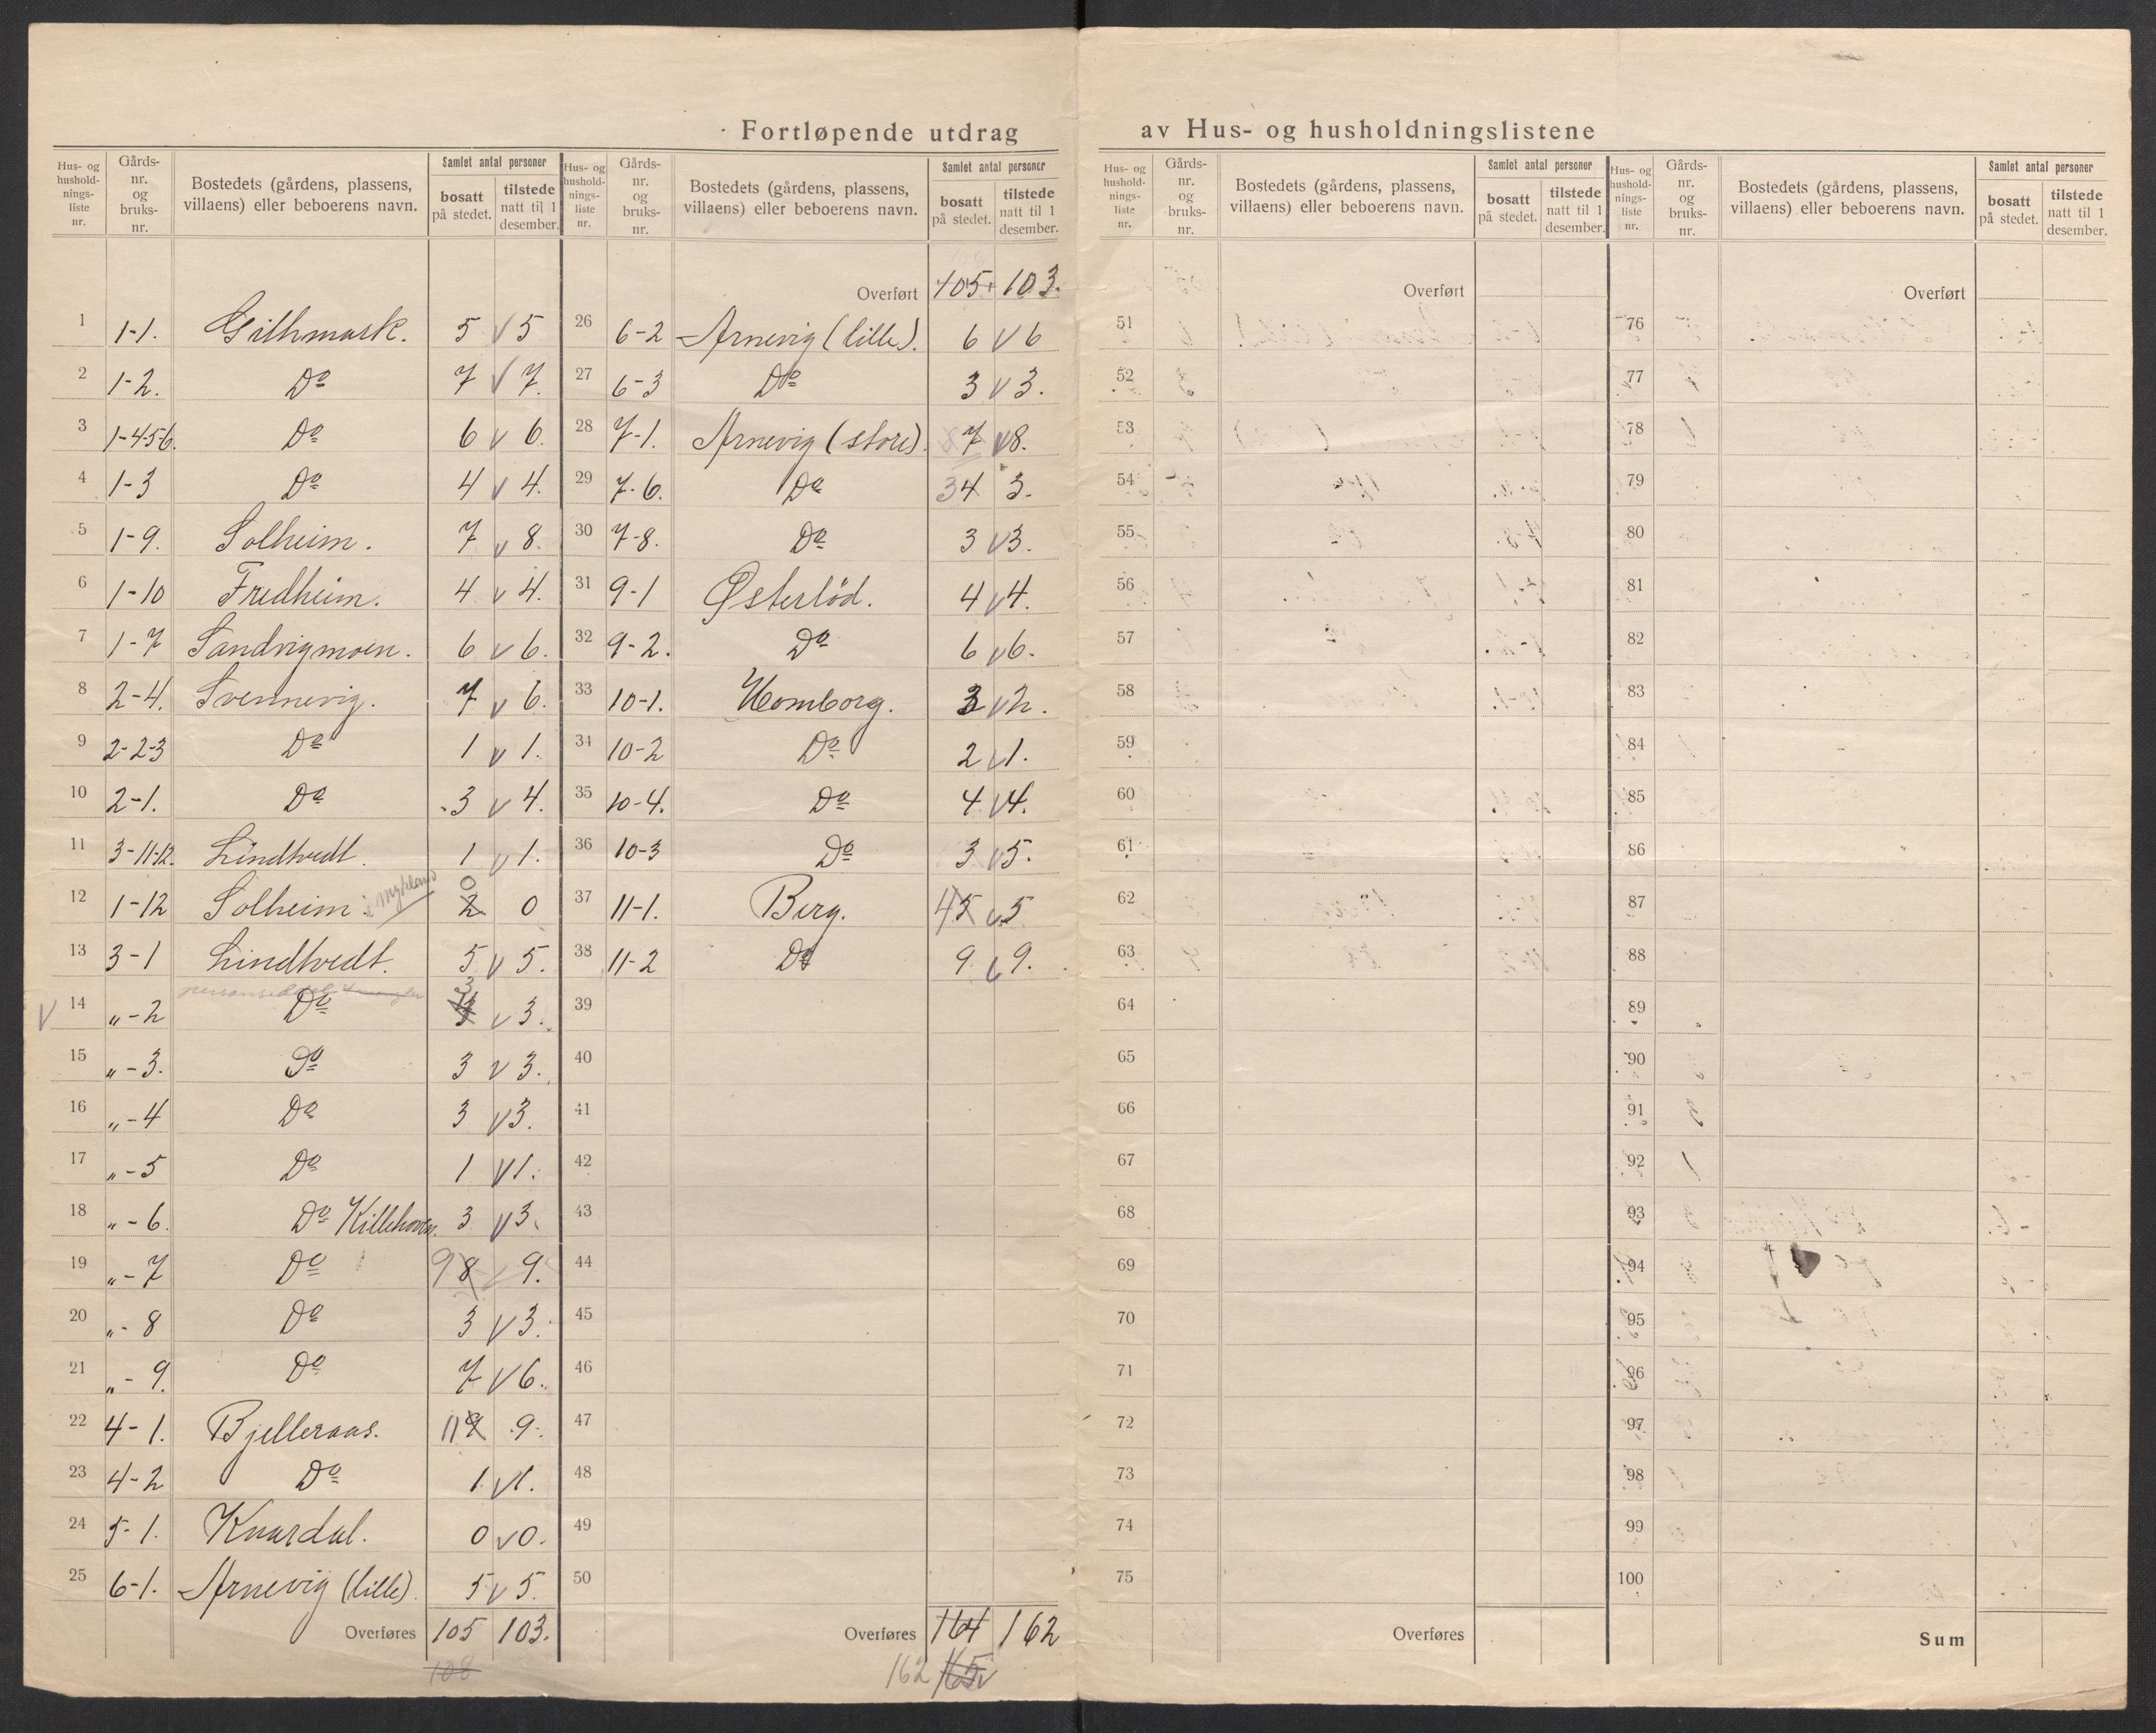 Fortløpende utdrag av Hus- og husholdningslistene
Hus- og husholdningsliste nr. | Gårds-nr. og bruks-nr. | Bostedets (gårdens, plassens, villaens) eller beboerens navn. | Samlet antal personer bosatt på stedet. | tilstede natt til 1 desember.
1 1-1. Gilhmark. 5 V 5
2 1-2. Do 7 V 7.
3 1-4-5-6. Do 6 v 6.
4 1-3 Do 4 v 4.
5 1-9. Solheim. 7 v 8.
6 1-10 Fredheim. 4 v 4.
7 1-7 Sandvigmoen. 6 v 6.
8 2-4. Svennevig. 7 v 6.
9 2-2-3 Do 1 v 1.
10 2-1. Do 3 v 4.
11 3-11-12. Lindtvedt. 1 v 1.
12 1-12 Solheim. i Nykland 0 2 0
13 3-1 Lindtvedt. 5 v 5.
V 14 „-2 Do 3 v 3.
15 „-3. Do 3 v 3.
16 „-4 Do 3 v 3.
17 „-5 Do 1 v 1.
18 „-6. Do Killehoven. 3 v 3.
19 „-7 Do 9 8 9.
20 „-8 Do 3 v 3.
21 „-9. Do 7 v 6.
22 4-1. Bjelleraas. 11 9 9.
23 4-2 Do 1 v 1.
24 5-1. Knardal. 0 v 0.
25 6-1. Arnevig (lille). 5 v 5.
Overføres 105 103.
108
Hus- og husholdningsliste nr. | Gårds-nr. og bruks-nr. | Bostedets (gårdens, plassens, villaens) eller beboerens navn. | Samlet antal personer bosatt på stedet. | tilstede natt til 1 desember.
Overført 105 103.
26 6-2 Arnevig (lille). 6 v 6
27 6-3 Do 3 v 3.
28 7-1. Arnevig (store). 8 7 v 8.
29 7-6. Do 3 4 3.
30 7-8. Do 3 v 3.
31 9-1 Østerlöd. 4 v 4.
32 9-2. Do 6 v 6.
33 10-1. Homborg. 3 v 2.
34 10-2 Do 2 v 1.
35 10-4. Do 4 v 4.
36 10-3 Do 3 v 5.
37 11-1. Berg. 4 5 v 5
38 11-2 Do 9 v 9.
39
40
41
42
43
44
45
46
47
48
49
50
Overføres 164 162
162 165 v
Hus- og husholdningsliste nr. | Gårds-nr. og bruks-nr. | Bostedets (gårdens, plassens, villaens) eller beboerens navn. | Samlet antal personer bosatt på stedet. | tilstede natt til 1 desember.
Overført
51
52
53
54
55
56
57
58
59
60
61
62
63
64
65
66
67
68
69
70
71
72
73
74
75
Overføres
Hus- og husholdningsliste nr. | Gårds-nr. og bruks-nr. | Bostedets (gårdens, plassens, villaens) eller beboerens navn. | Samlet antal personer bosatt på stedet. | tilstede natt til 1 desember.
Overført
76
77
78
79
80
81
82
83
84
85
86
87
88
89
90
91
92
93
94
95
96
97
98
99
100
Sum